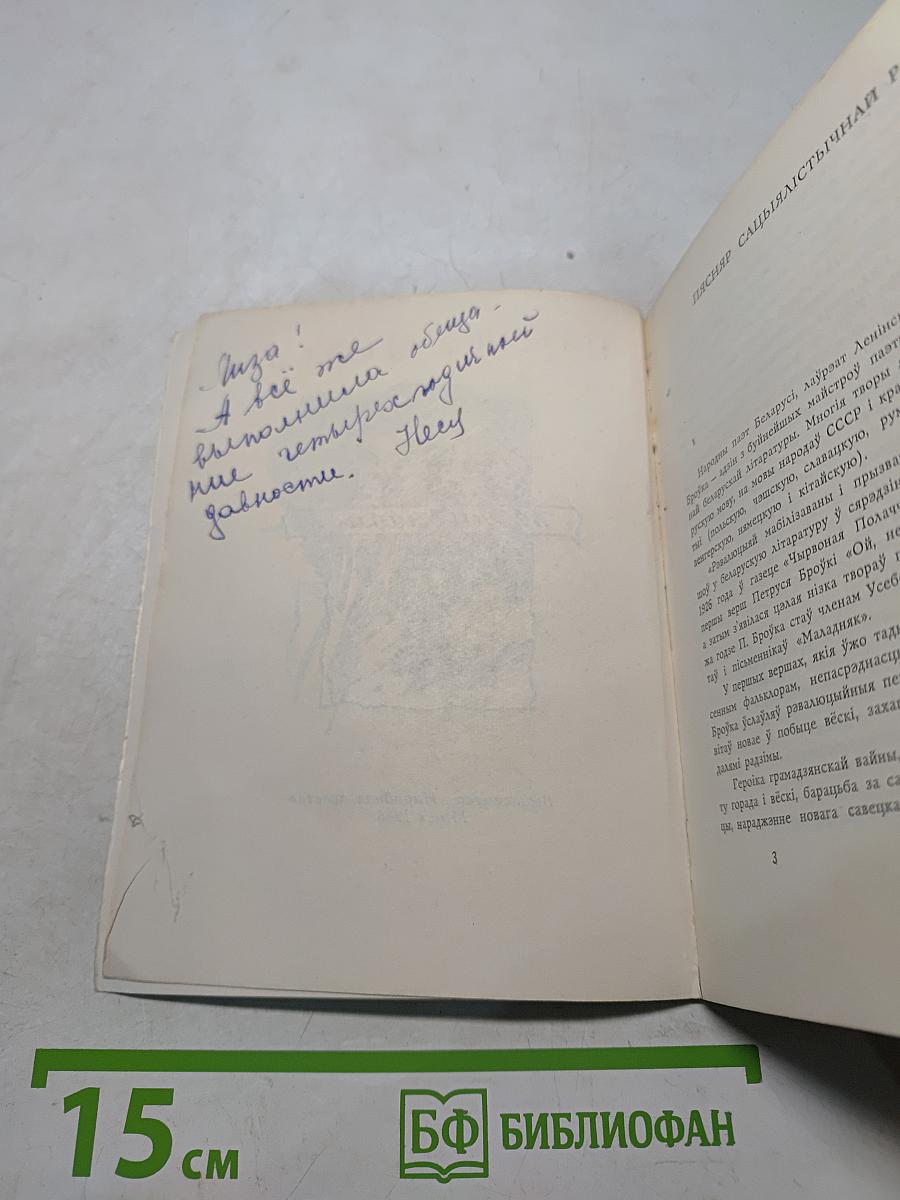 Лиза!
А всё же
выполнила обеща-
ние четырехгодичной
давности.
ПЯСНЯР САЦЫЯЛІСТЫЧНАЙ
Народны паэт Беларусі, лаўрэат Ленінск
Броўка — адзін з буйнейшых майстроў паэт
най беларускай літаратуры. Многія творы
рускую мову, на мовы народаў СССР і кра
ты (польскую, чэшскую, славацкую, рум
венгерскую, нямецкую і кітайскую).
«Рэвалюцыяй мабілізаваны і прызва
шоў у беларускую літаратуру ў сярэдзін
1926 года ў газеце «Чырвоная Полачч
першы верш Петруся Броўкі «Ой, не
а затым з'явілася цэлая нізка твораў п
жа годзе П. Броўка стаў членам Усеб
таў і пісьменнікаў «Маладняк».
У першых вершах, якія ўжо тады
сенным фальклорам, непасрэднасц
Броўка ўслаўляў рэвалюцыйныя пе
вітаў новае ў побыце вёскі, захап
далямі радзімы.
Героіка грамадзянскай вайны,
ту горада і вёскі, барацьба за са
цы, нараджэнне новага савецка
3
15 см
БФ БИБЛИОФАН